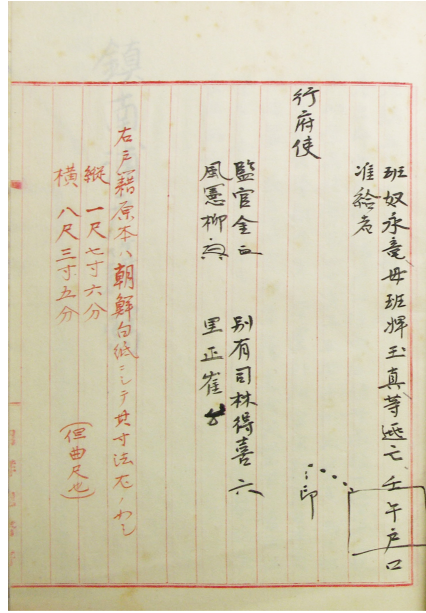 班奴永竜、母班婢玉真等逃亡、壬午戶口
准給者
行府使
印
監官金
別有司林得喜
風憲柳
里正崔
右戸籍原本ハ朝鮮白紙ニシテ其寸法左ノ如シ
縦 一尺七寸六分
横 八尺三寸五分
(但曲尺也)